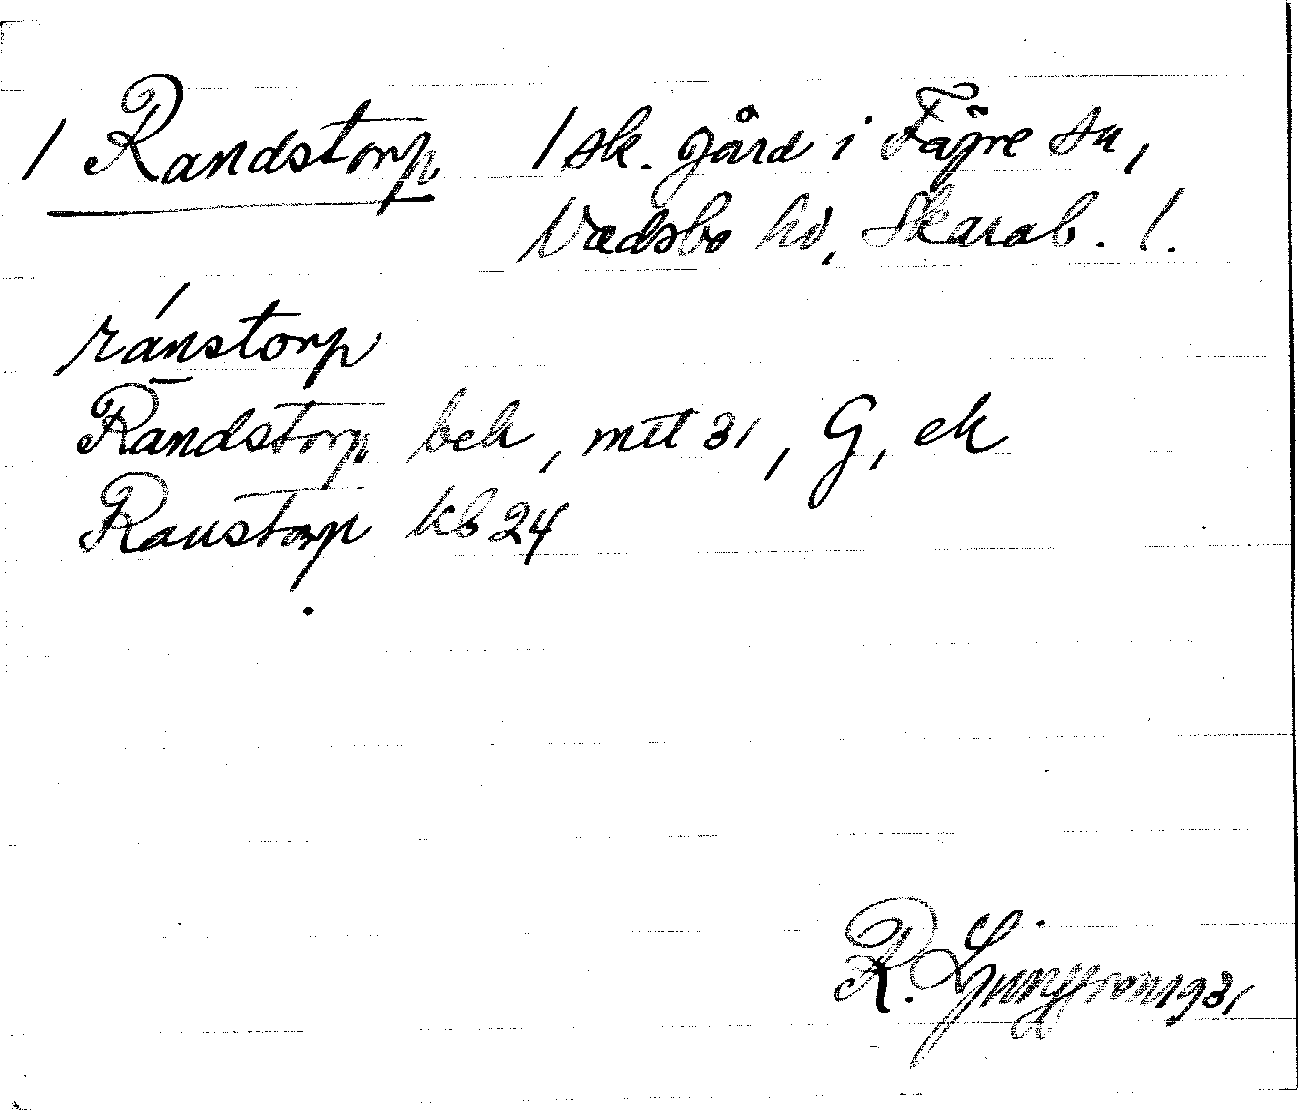 / Randstorp / sk. gård i Fägre sn,
Vadsbo hd, Skarab. l.
ránstorp
Randstorp bek, mtl 31, G, ek
Ranstorp kb 24
R. Ljunggren 1931